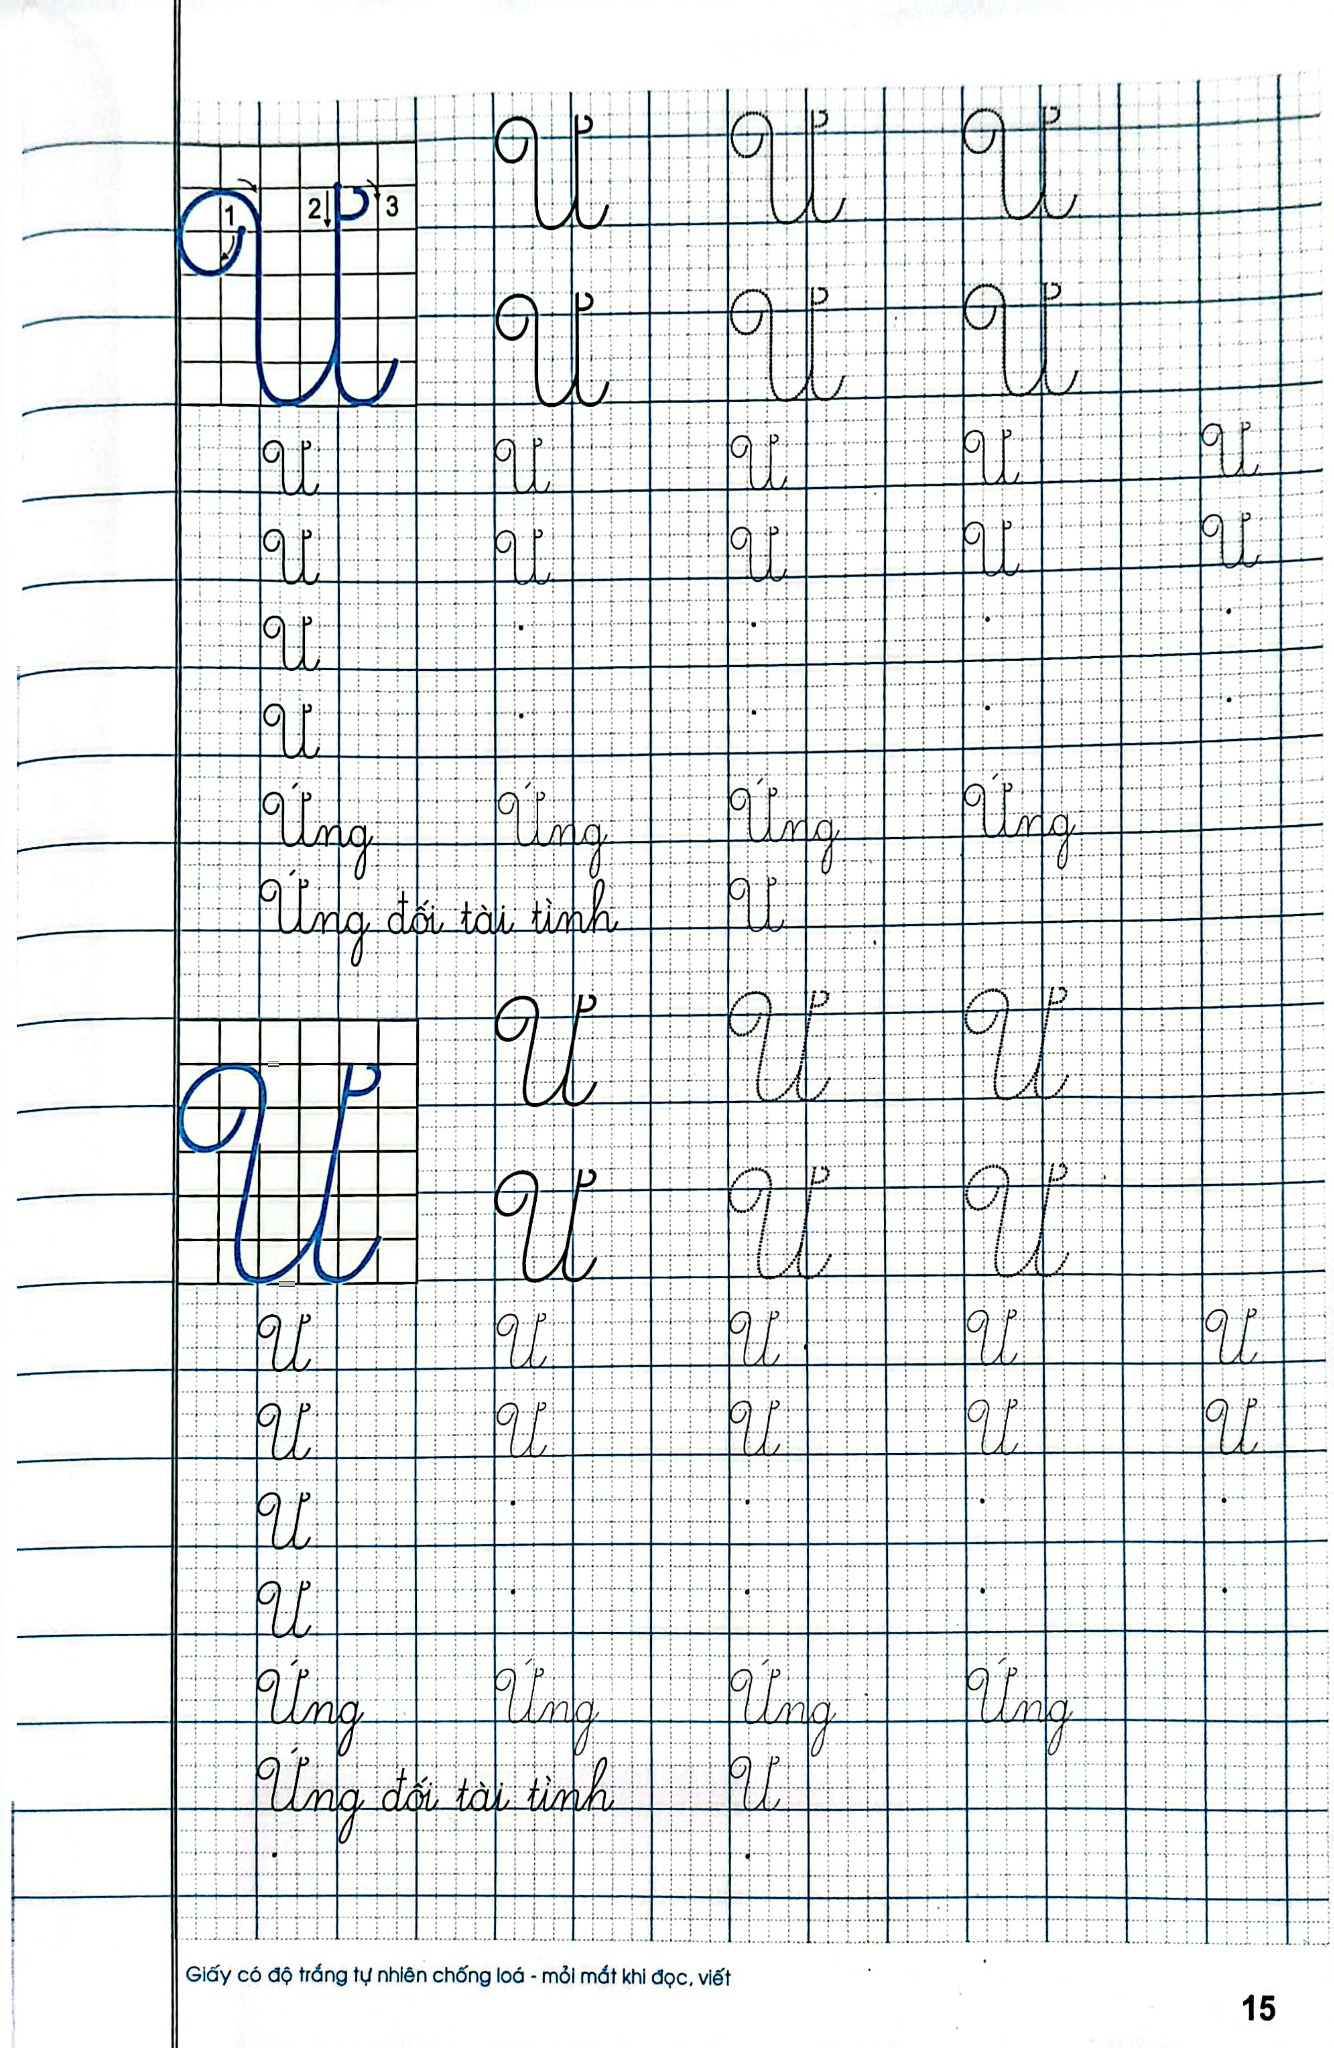 1 2 3
Ư Ư Ư
Ư Ư Ư
Ư Ư Ư Ư Ư
Ư Ư Ư Ư Ư
Ư
Ư
Ứng Ứng Ứng Ứng
Ứng đối tài tình U
Ư Ư Ư
Ư Ư Ư Ư
Ư Ư Ư Ư Ư
Ư Ư Ư Ư Ư
Ư
Ư
Ứng Ứng Ứng Ứng
Ứng đối tài tình U
Giấy có độ trắng tự nhiên chống loá - mỏi mắt khi đọc, viết
15